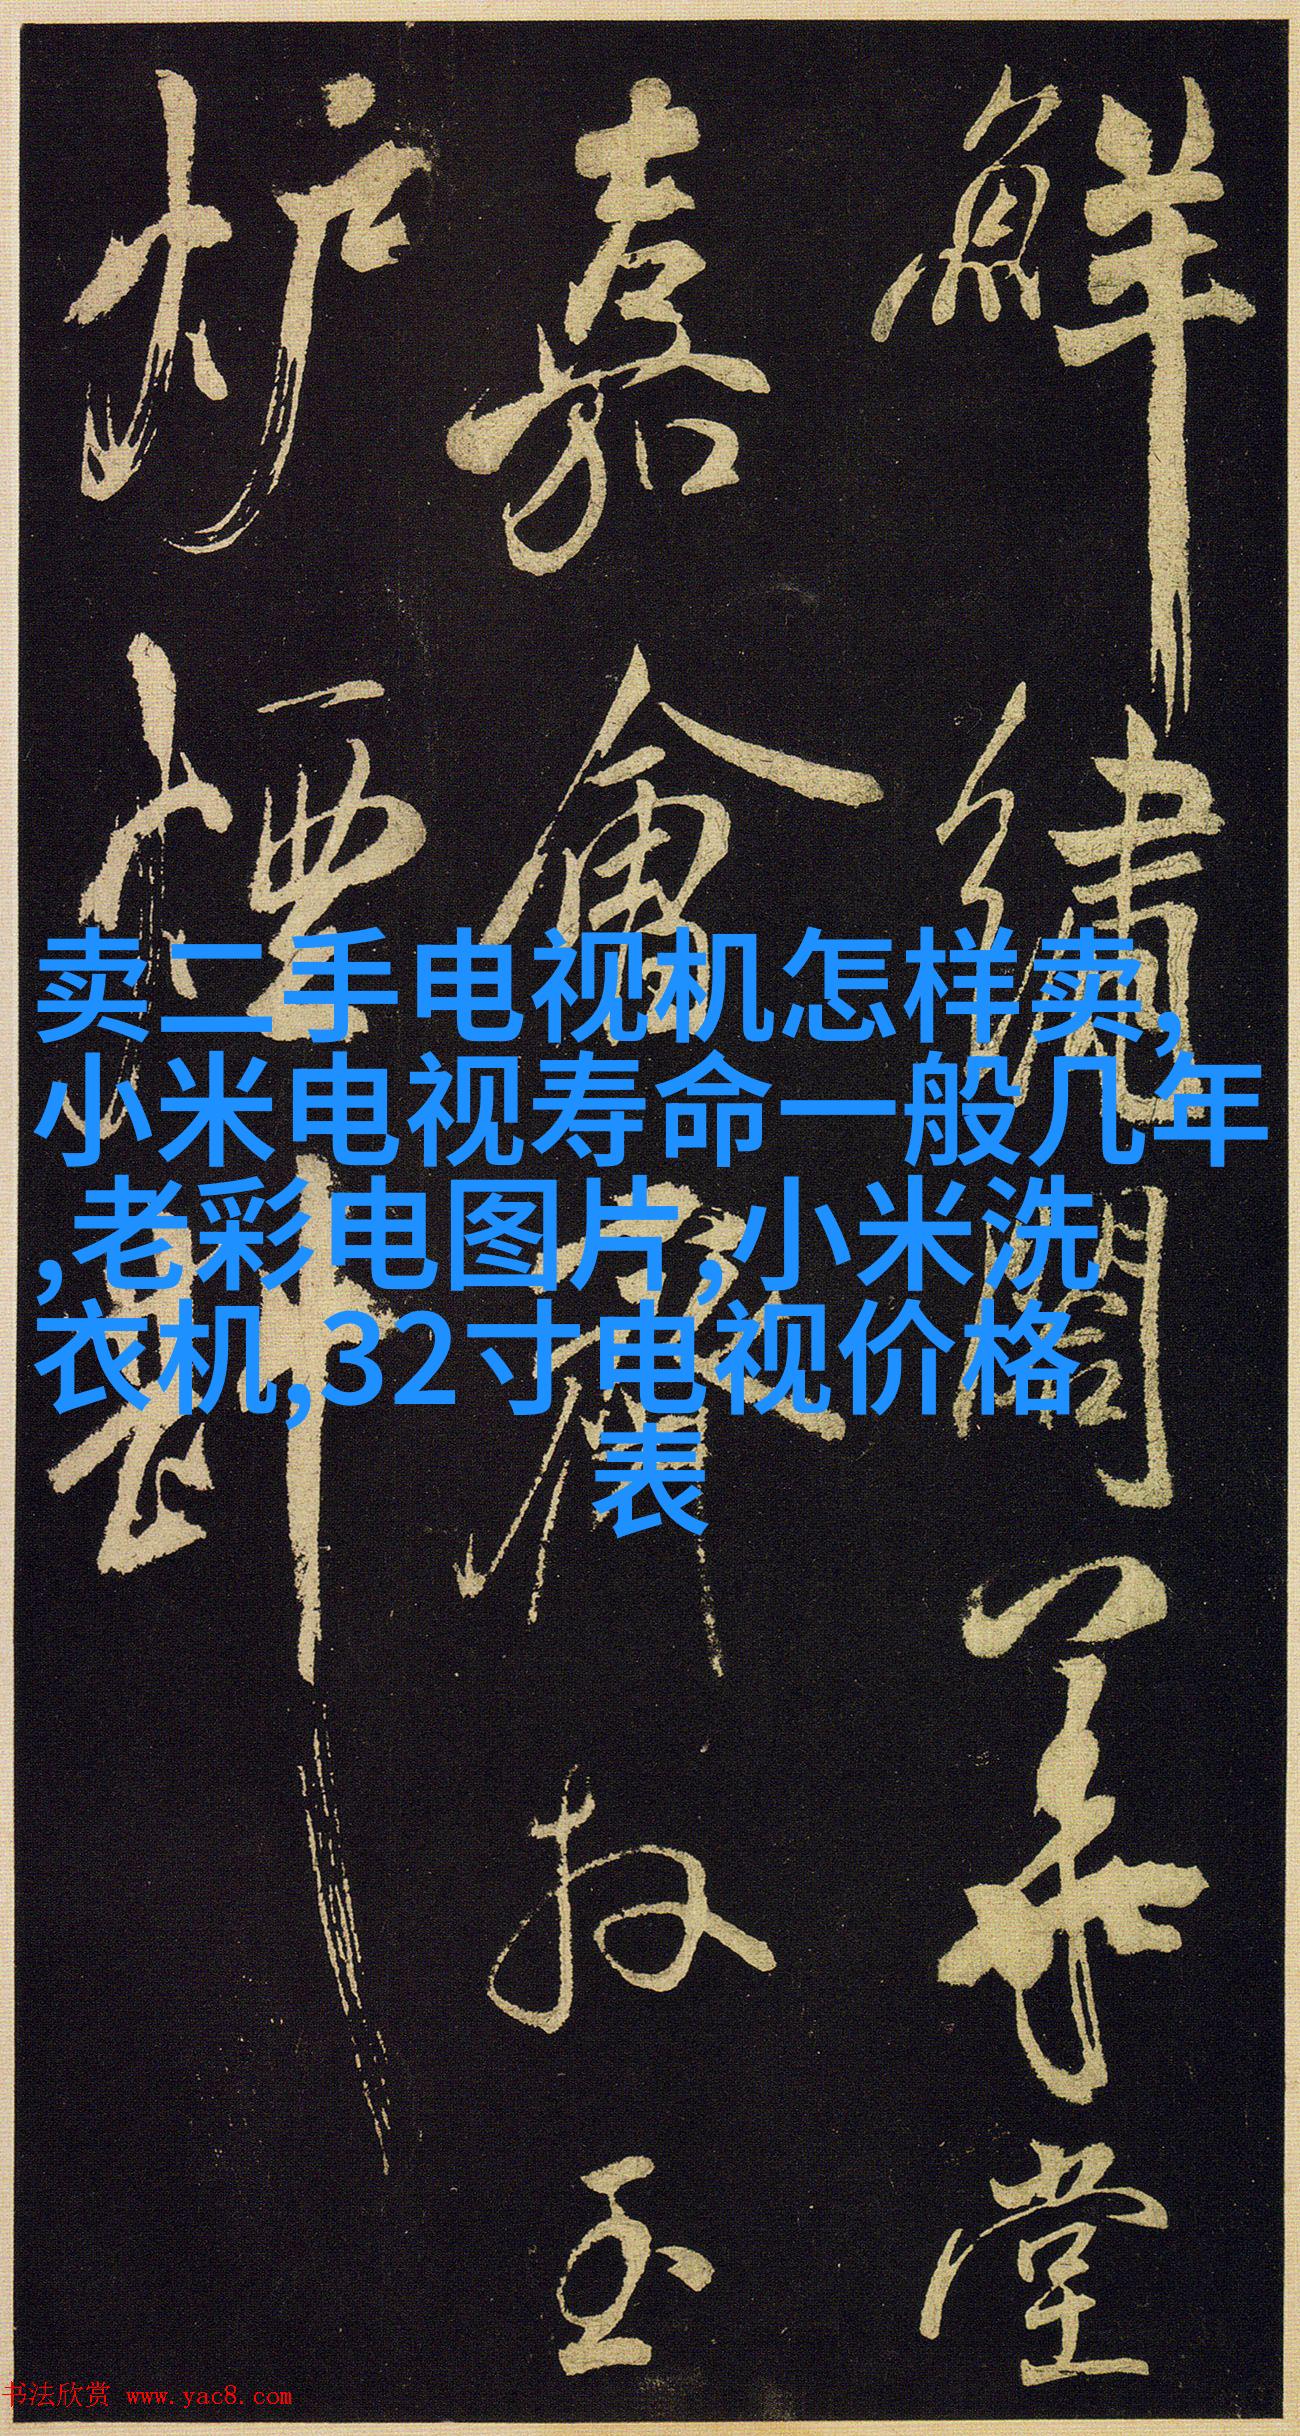 鮮繡閣華堂
嘉會玉
炉煙斟
卖二手电视机怎样卖,
小米电视寿命一般几年
,老彩电图片,小米洗
衣机,32寸电视价格
表
书法欣赏 www.yac8.com